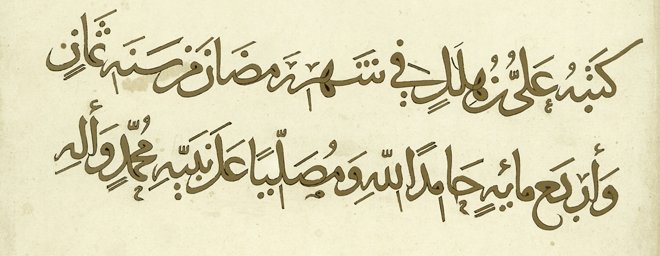 كَتَبَهُ عَلِيُّ بْنُ هِلَالٍ فِي شَهْرِ رَمَضَانَ مِنْ سَنَةِ ثَمَانٍ
وَأَرْبَع مِائَةٍ حَامِدًا اللهِ وَمُصَلِّيًا عَلَى نَبِيِّهِ مُحَمَّدٍ وَألِهِ